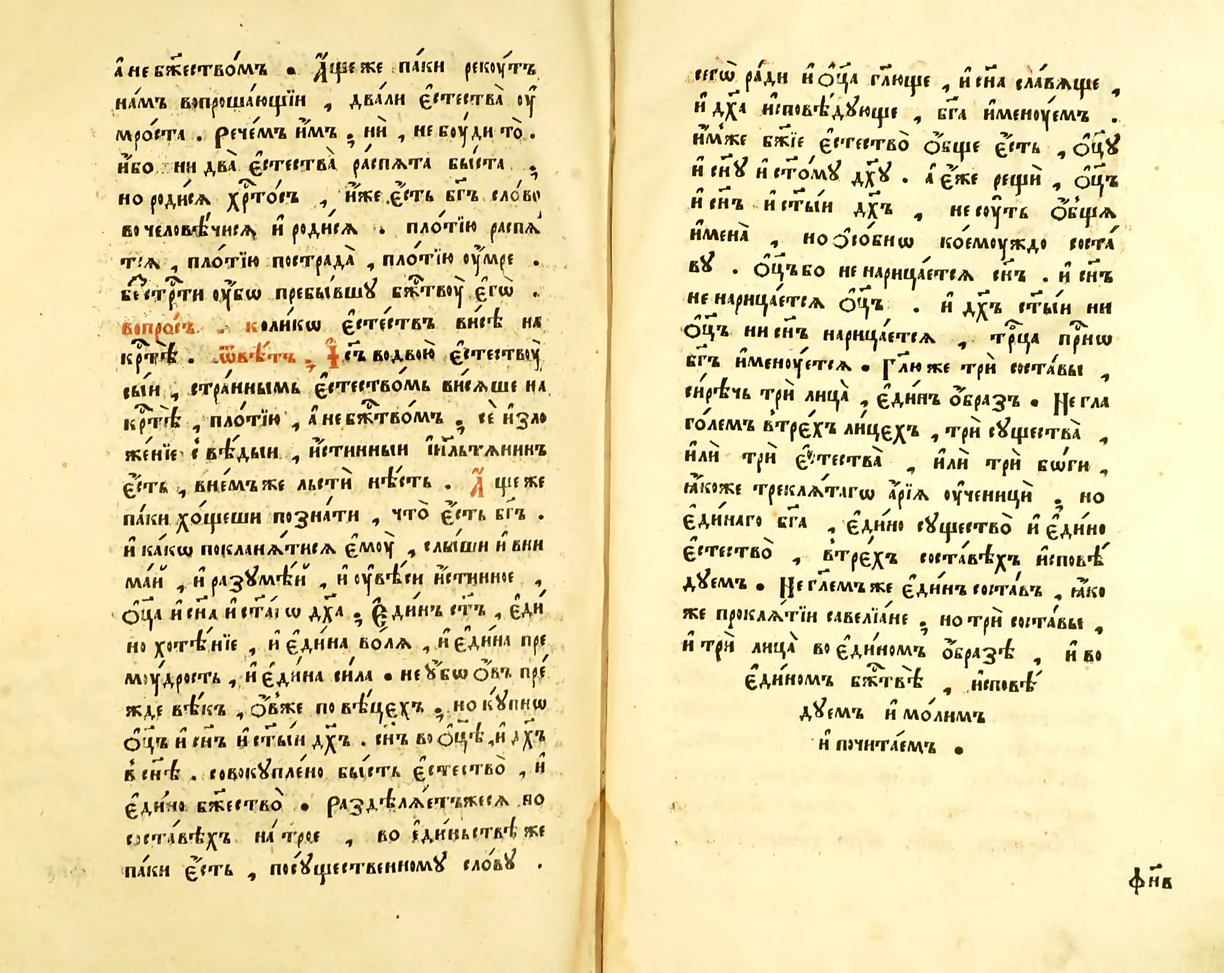 а҆ не бж҃ество́мъ . А҆́ще же па́ки рекоу́тъ
на́мъ вопроша́ющїи , два́ли є҆стества̀ оу҆
мро́ста . Рече́мъ и҆̀мъ , нѝ , не боу́ди то̀ .
и҆́бо ни два̀ є҆стества̀ распѧ́та бы́ста ,
но роди́сѧ хрⷭ҇то́съ , и҆́же є҆́сть бг҃ъ сло́во
вочеловѣ́чисѧ и҆ роди́сѧ . пло́тїю распѧ́
тсѧ , пло́тїю пострада̀ , пло́тїю оу҆́мре .
бестрⷭ҇ти оу҆́бѡ пребы́вшꙋ бжⷭ҇твоу̀ є҆гѡ̀ .
вопро́съ . коли́кѡ є҆сте́ствъ висѣ̀ на
крⷭ҇тѣ̀ . ѿвѣ́тъ , І҆с҃ъ во двою̀ є҆стествоу̀
сы́и , стра́ннымъ є҆стество́мь висѧ́ше на
крⷭ҇тѣ̀ , пло́тїю , а҆ не бжⷭ҇тво́мъ , сѐ и҆зло
же́нїе свѣ́дыи , и҆́стинныи і҆и҃льтѧнинъ
є҆́сть , в не́мъ же льстѝ нѣ́сть . А҆́ще же
па́ки хо́щеши позна́ти , что̀ є҆́сть бг҃ъ .
и҆ ка́кѡ поклана́тисѧ є҆моу̀ , слы́ши и҆ вни
ма́й , и҆ разꙋмѣ́й , и҆ оу҆вѣ́си и҆́стинное ,
ѻ҆ц҃а и҆ сн҃а и҆ ст҃а́гѡ дх҃а , Є҆ди́нъ ст҃ъ , є҆ди́
но хотѣ́нїе , и҆ є҆ди́на во́лѧ , и҆ є҆ди́на пре
моу́дрость , и҆ є҆ди́на си́ла . не оу҆́бѡ ѻ҆́въ пре́
жде вѣ́къ , ѻ҆́вже по вѣ́цехъ , но кꙋ́пнѡ
ѻ҆ц҃ъ и҆ сн҃ъ и҆ ст҃ы́и дх҃ъ . сн҃ъ во ѻ҆ц҃ѣ̀ , и҆ дх҃ъ
в сн҃ѣ . совокꙋпле́но бы́сть є҆стество̀ , и҆
є҆ди́но бж҃ество̀ . Раздѣлѧ́етъжесѧ во
соста́вѣхъ на́ трое , во є҆ди́ньствѣ же
па́ки є҆́сть , посꙋ́щественномꙋ сло́вꙋ .
сегѡ̀ ра́ди и҆ ѻ҆ц҃а гл҃юще , и҆ сн҃а сла́вѧще ,
и҆ дх҃а и҆сповѣ́дꙋюще , бг҃а и҆меноу́емъ .
и҆́мже бж҃їе є҆стество̀ ѻ҆́бще є҆́сть , ѻ҆ц҃ꙋ
и҆ сн҃ꙋ и҆ ст҃о́мꙋ дх҃ꙋ . а҆ є҆́же рещѝ , ѻ҆ц҃ъ
и҆ сн҃ъ и҆ ст҃ы́и дх҃ъ , не соу́ть ѻ҆́бщѧ
и҆мена̀ , но ѻ҆со́бнѡ коемоу́ждо соста́
вꙋ . ѻ҆ц҃ъ бо не нарица́етсѧ сн҃ъ . и҆ сн҃ъ
не нарица́етсѧ ѻ҆ц҃ъ . и҆ дх҃ъ ст҃ы́и ни
ѻ҆ц҃ъ ни сн҃ъ нарица́етсѧ , трⷪ҇ца прⷭ҇нѡ
бг҃ъ и҆меноу́етсѧ . Гл҃ю же трѝ соста́вы ,
си́рѣчь трѝ лица̀ , є҆ди́нъ ѻ҆́бразъ . Не гла
го́лемъ в трє́хъ ли́цєхъ , трѝ сꙋщества̀ ,
и҆лѝ трѝ є҆стества̀ , и҆лѝ трѝ бѡ́ги ,
ꙗ҆́коже треклѧ́тагѡ а҆́рїѧ оу҆ченицѝ , но
є҆ди́наго бг҃а , є҆ди́но сꙋщество̀ и҆ є҆ди́но
є҆стество̀ , в трє́хъ соста́вѣхъ и҆сповѣ́
дꙋемъ . Не гл҃емъ же є҆ди́нъ соста́въ , ꙗ҆́ко
же проклѧ́тїи савелїа́не , но трѝ соста́вы ,
и҆ трѝ лица̀ во є҆ди́номъ ѻ҆́бразѣ , и҆ во
є҆ди́номъ бжⷭ҇твѣ̀ , и҆сповѣ́
дꙋемъ и҆ мо́лимъ
и҆ почита́емъ .
фн҃в